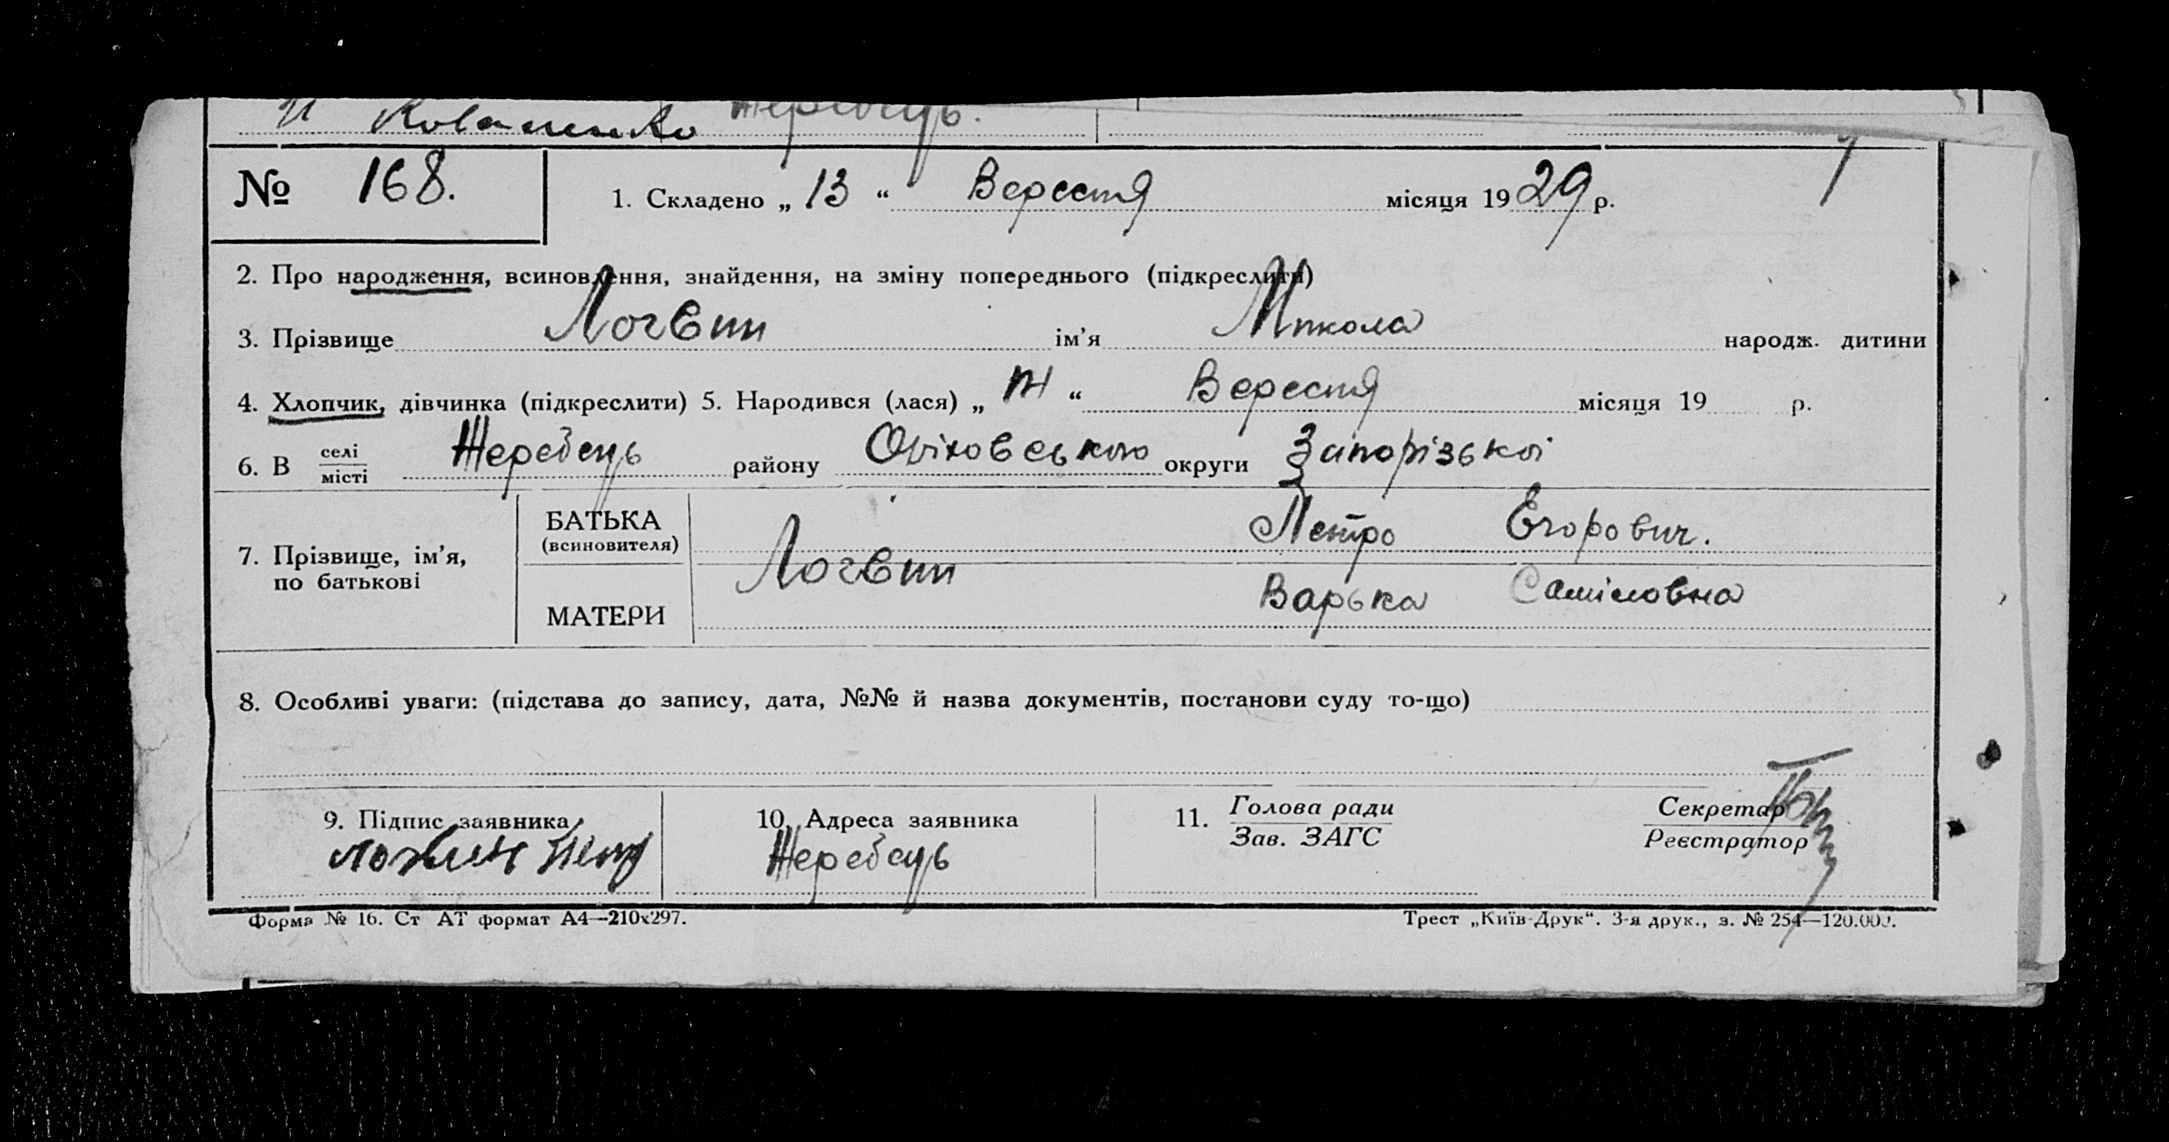 И Коваленко Жеребець.
№ 168. 1. Складено „ 13 “ Вересня місяця 1929 р.
2. Про народження, всиновлення, знайдення, на зміну попереднього (підкреслити)
3. Прізвище Логвин ім’я Микола народж. дитини
4. Хлопчик, дівчинка (підкреслити) 5. Народився (лася) „ “ Вересня місяця 19 р.
6. В селі місті Жеребець району Оріховського округи Запорізької
7. Прізвище, ім’я, по батькові
БАТЬКА (всиновителя) Логвин Петро Егорович.
МАТЕРИ Варька Самійловна
8. Особливі уваги: (підстава до запису, дата, №№ й назва документів, постанови суду то-що)
9. Підпис заявника 10. Адреса заявника 11. Голова ради Зав. ЗАГС Секретар Реєстратор
Жеребець
Форма № 16. Ст АТ формат А4—210х297. Трест „Київ-Друк“. 3-я друк., з. № 254—120.000.